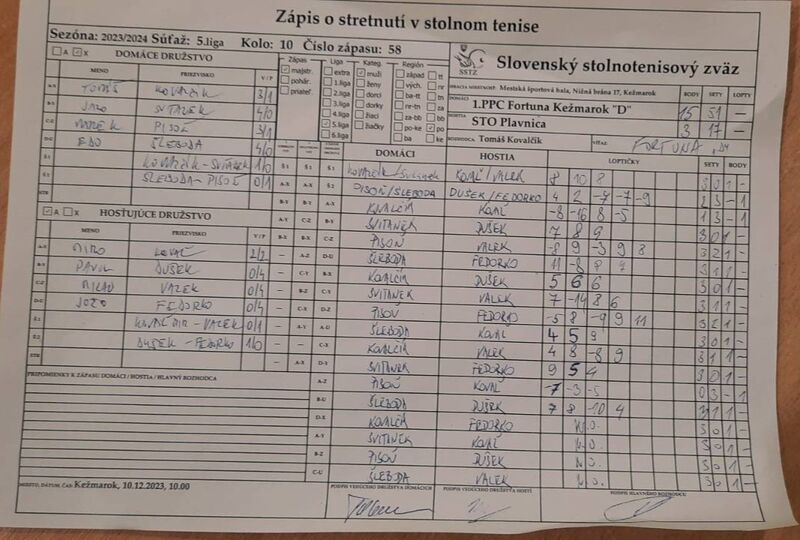 Zápis o stretnutí v stolnom tenise
Sezóna: 2023/2024 Súťaž: 5.liga Kolo: 10 Číslo zápasu: 58
A X DOMÁCE DRUŽSTVO
MENO PRIEZVISKO V/P
A-X TOMÁŠ KOVALČÍK 3/1
B-Y JARO SVITANEK 4/0
C-Z MAREK PISOŇ 3/1
D-U EDO ŠLEBODA 4/0
KOVALČÍK-SVITANEK 1/0
ŠLEBODA-PISOŇ 0/1
STR
A X HOSŤUJÚCE DRUŽSTVO
MENO PRIEZVISKO V/P
MIRO KOVAĽ 2/2
PAVOL DUŠEK 0/4
MILAN VALEK 0/4
JOZO FEDORKO 0/4
VALEK 0/1
DUŠEK-FEDORKO 1/0
STR
PRIPOMIENKY K ZÁPASU DOMÁCI / HOSTIA / HLAVNÝ ROZHODCA
MIESTO, DÁTUM, ČAS: Kežmarok, 10.12.2023, 10.00
Zápas Liga Kateg. Región
majstr. extra muži západ tt
pohár. 1.liga ženy vých. nr
priateľ. 2.liga dorci ba-tt tn
3.liga dorky nr-tn za
4.liga žiaci za-bb bb
5.liga žiačky ko-po po
6.liga ba ke
SSTZ
Slovenský stolnotenisový zväz
HRACIA MIESTNOSŤ: Mestská športová hala, Nižná brána 17, Kežmarok BODY SETY LOPTY
DOMÁCI 1.PPC Fortuna Kežmarok "D" 15 51 -
HOSTIA STO Plavnica 3 17 -
ROZHODCA Tomáš Kovalčík VÍŤAZ: FORTUNA "D"
DOMÁCI HOSTIA LOPTIČKY SETY BODY
KOVALČÍK/SVITANEK KOVAĽ/VALEK 8 10 8 3 0 1 -
PISOŇ/ŠLEBODA DUŠEK/FEDORKO 4 2 -7 -7 -9 2 3 - 1
KOVALČÍK KOVAĽ -8 -16 8 -5 1 3 - 1
SVITANEK DUŠEK 7 8 9 3 0 1 -
PISOŇ VALEK -8 9 -3 9 8 3 2 1 -
ŠLEBODA FEDORKO 11 -8 8 7 3 1 1 -
KOVALČÍK DUŠEK 5 6 6 3 0 1 -
SVITANEK VALEK 7 -14 8 6 3 1 1 -
PISOŇ FEDORKO -5 8 -9 9 11 3 2 1 -
ŠLEBODA KOVAĽ 4 5 9 3 0 1 -
KOVALČÍK VALEK 4 8 -8 9 3 1 1 -
SVITANEK FEDORKO 9 5 4 3 0 1 -
PISOŇ KOVAĽ -7 -3 -5 0 3 - 1
ŠLEBODA DUŠEK 7 8 -10 4 3 1 1 -
KOVALČÍK FEDORKO W.O. 3 0 1 -
SVITANEK KOVAĽ W.O. 3 0 1 -
PISOŇ DUŠEK W.O. 3 0 1 -
ŠLEBODA VALEK W.O. 3 0 1 -
PODPIS VEDÚCEHO DRUŽSTVA DOMÁCICH PODPIS VEDÚCEHO DRUŽSTVA HOSTÍ PODPIS HLAVNÉHO ROZHODCU